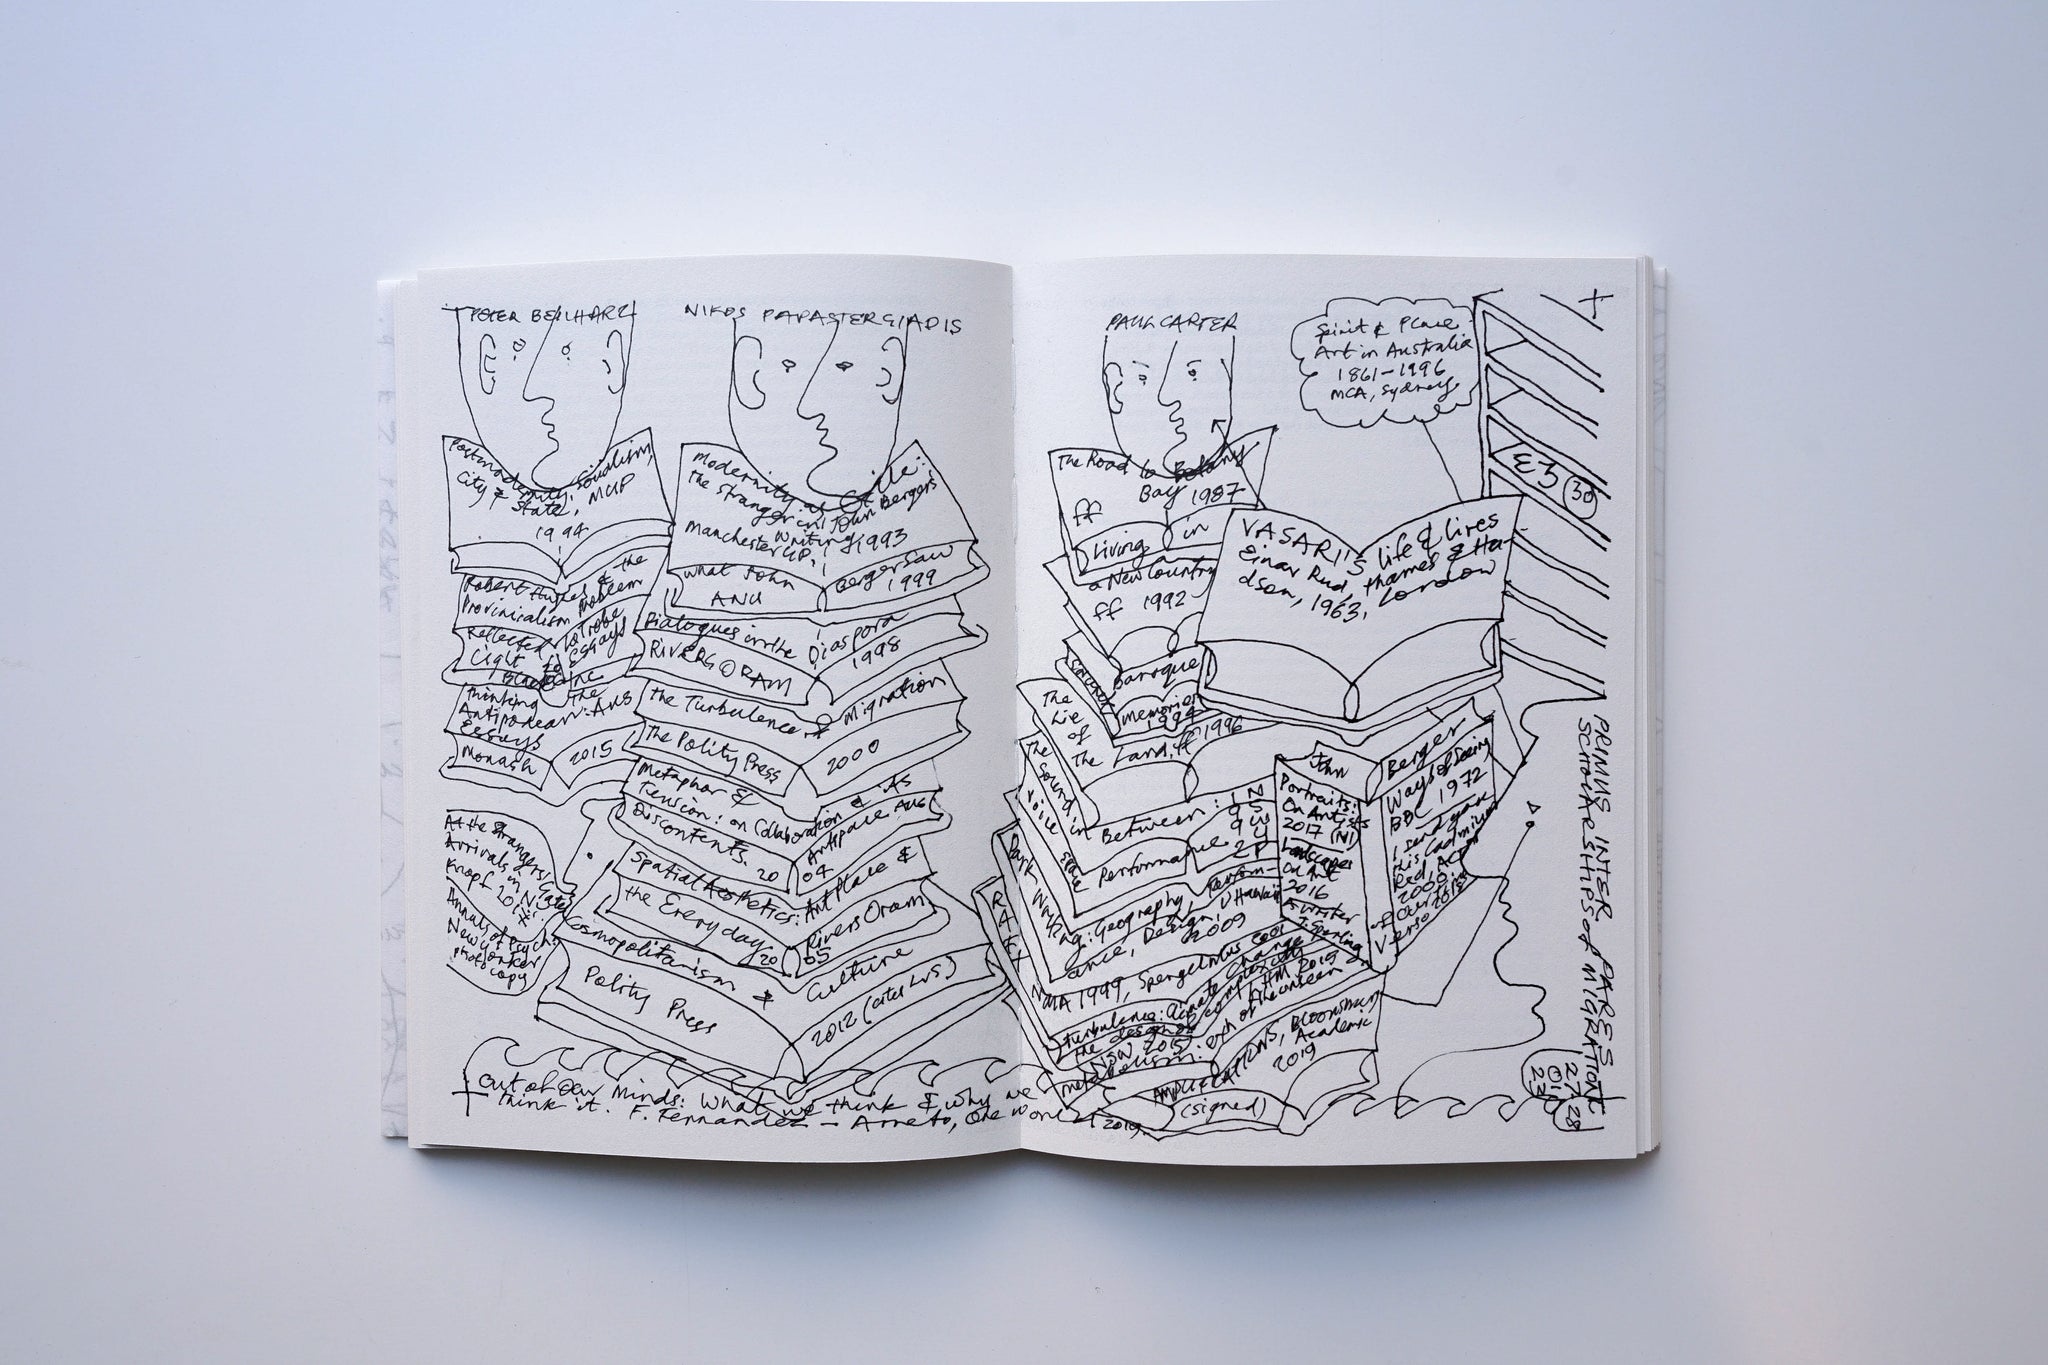 PETER BEILHARZ
NIKOS PAPASTERGIADIS
Postmodernity, Socialism,
City & State, MUP
1994
Robert Hughes & the
Provincialism Problem
Reflected
Light
La Trobe
Essays
Thinking the
Antipodean: Aus
Essays
Monash
2015
At the Strangers' Gate
Arrivals in N
Knopf 201
Annals of Psych
New Yorker
photocopy
Modernity as Exile:
the Stranger in John Bergers
writing
Manchester UP. 1993
what John
Berger Saw
ANU
1999
Dialogues in the Diaspora
RIVERS ORAM
1998
The Turbulence of Migration
The Polity Press
2000
Metaphor &
Tension: on Collaboration & its
Discontents.
Artspace. Aug
20
04
Spatial Aesthetics: Art Place &
the Everyday
Rivers Oram
20
05
Cosmopolitanism &
Culture
Polity Press
2012
out of our minds: What we think & why we
think it. F. Fernandez-Armesto, One world 2019.
PAUL CARTER
Spirit & Place
Art in Australia
1861-1996
MCA, Sydney
The Road to Botany
Bay 1987
ff
Living in
a New Country
ff 1992
Baroque
Memories
1994
The
Lie
of
The Land, ff 1996
The
Sound in
Between:
voice
space
Performance
Dark
Writing: Geography, Perform-
ance, Design, U Hawaii
2009
NMA 1999,
Turbulence: Climate Change
the design of complexity
NSW 2015
Metabolism: of the unseen
AMPLIFICATIONS, Bloomsbury
Academic
2019
(signed)
VASARI'S life & lives
Einar Rud, Thames & Hu-
dson, 1963, London
John
Berger
Portraits:
On Artists
2017
Landscapes
On Art
2016
A writer
Ways of Seeing
BBC 1972
I send you
this Cadmium
Red,
2000
of Our Time
Verso
PRIMUS INTER PARES
SCHOLARSHIPS of MIGRATION
27
01
23